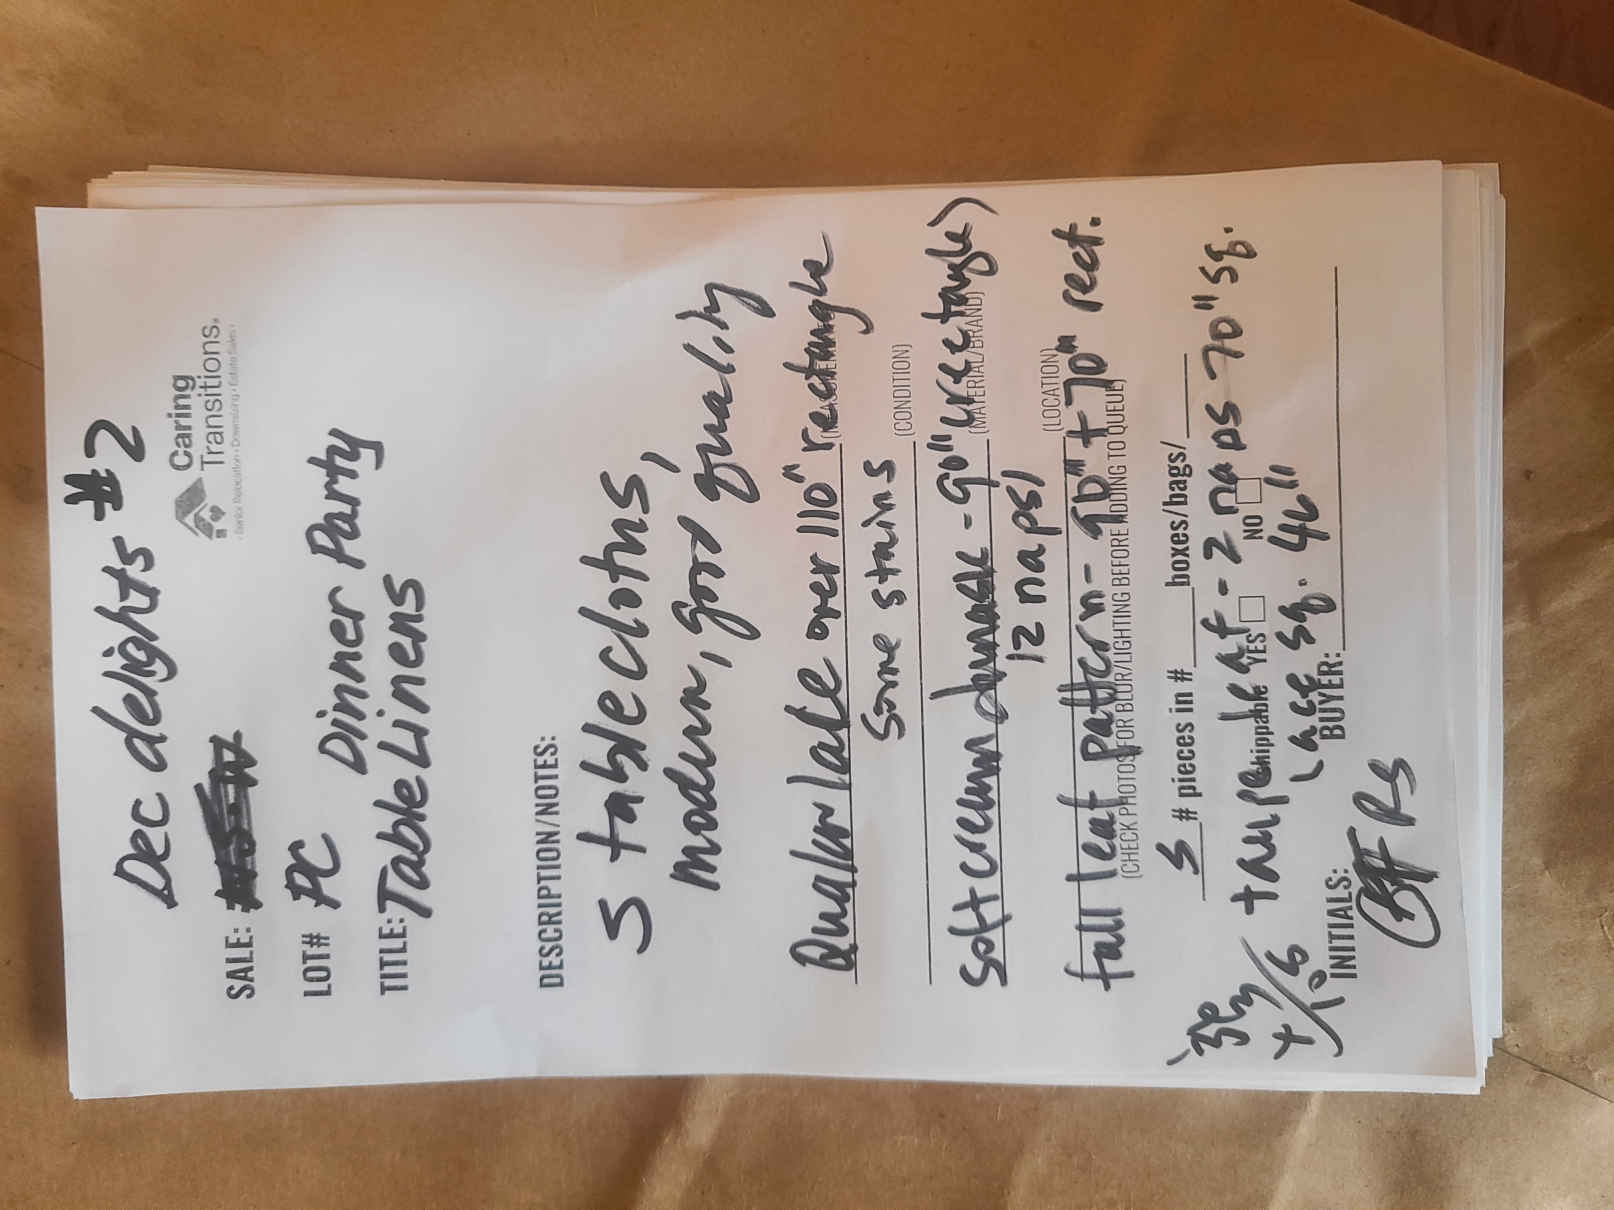 Dec delights #2
Caring
Transitions.
Senior Relocation • Downsizing • Estate Sales
SALE:
LOT# PC Dinner Party
TITLE: Table Linens
DESCRIPTION/NOTES:
5 tablecloths,
modern, good quality
Quaker lace over 110" rectangle
some stains
(CONDITION)
Soft cream damask - 90" (rectangle)
(MATERIAL/BRAND)
12 naps)
(LOCATION)
fall leaf pattern - 90" + 70" rect.
(CHECK PHOTOS FOR BLUR/LIGHTING BEFORE ADDING TO QUEUE)
5 # pieces in # boxes/bags/
taupe leaf - 2 naps - 70" sq.
shippable YES NO
lace sq. 46"
INITIALS: BUYER:
RS